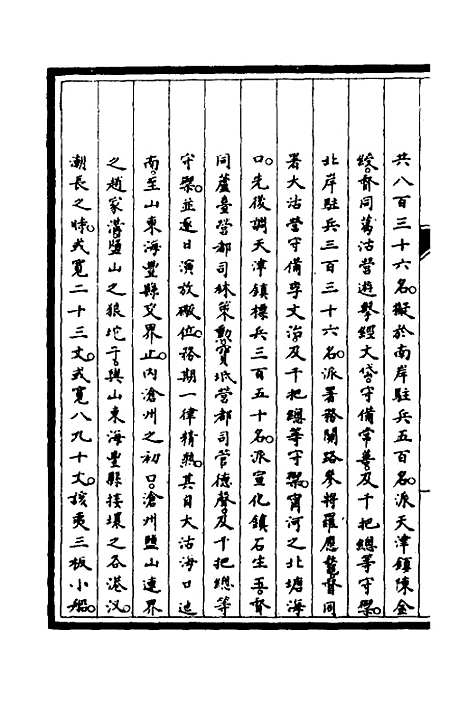 共八百三十六名擬於南岸駐兵五百名派天津鎮陳金
綬督同葛沽營遊擊經文岱守備常善及千把總等守禦
北岸駐兵三百三十六名派署務關路參將羅應鼇督同
署大沽營守備李文治及千把總等守禦甯河之北塘海
口先後調天津鎮標兵三百五十名派宣化鎮石生玉督
同蘆臺營都司林策勳寶坻營都司管德聲及千把總等
守禦並逐日演放礮位務期一律精熟其自大沽海口迤
南至山東海豐縣交界止內滄州之初口滄州鹽山連界
之趙家溝鹽山之狼坨子與山東海豐縣接壤之各港汊
潮長之時或寬二十三丈或寬八九十丈該夷三板小船